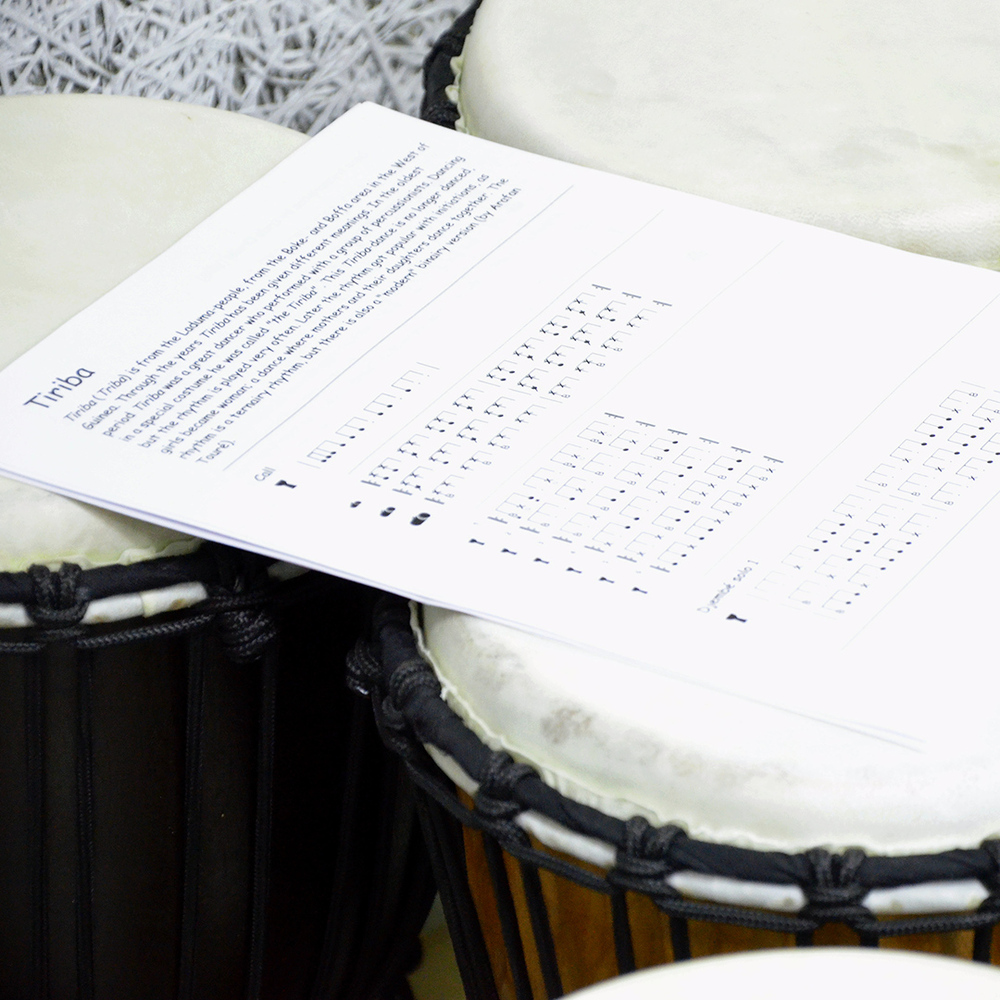 Tiriba
Tiriba (Triba) is from the Laduma-people, from the Boke- and Boffa area in the West of
Guinea. Through the years Tiriba has been given different meanings. In the oldest
period Tiriba was a great dancer who performed with a group of percussionists. Dancing
in a special costume he was called "the Tiriba". This Tiriba-dance is no longer danced,
but the rhythm is played very often. Later the rhythm got popular with initiations, as
girls become woman: a dance where mothers and their daughters dance together. The
rhythm is a ternairy rhythm, but there is also a "modern" binary version (by Arafan
Touré).
Call
Djembé solo 1